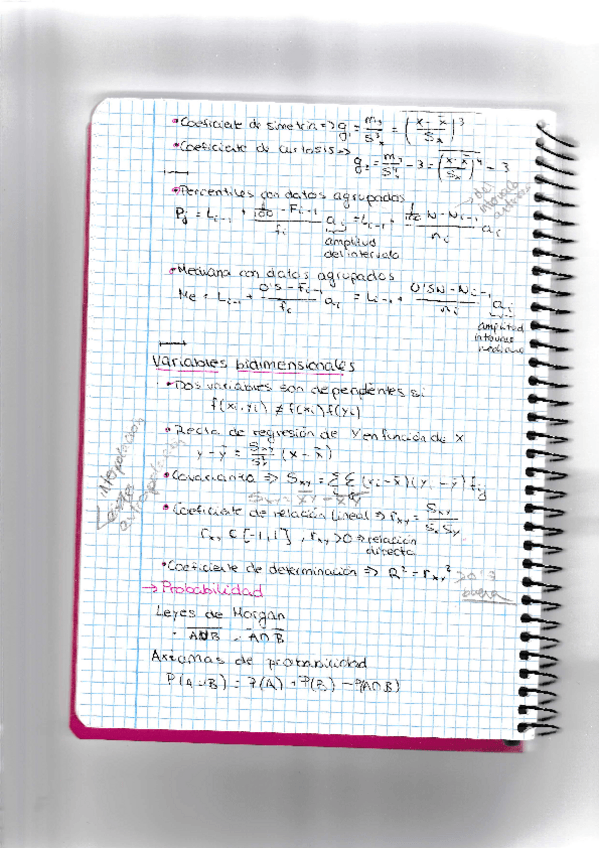 • Coeficiente de simetría => g₁ = m₃/S³ₓ = ((x - x̄)/Sₓ)³
• Coeficiente de curtosis =>
g₂ = m₄/S⁴ₓ - 3 = ((x - x̄)/Sₓ)⁴ - 3
• Percentiles con datos agrupados
Pj = Li-1 + (j/100 - Fi-1)/fi ai = Li-1 + (j/100 N - Ni-1)/ni ai
amplitud
del intervalo
• Mediana con datos agrupados
Me = Li-1 + (0'5 - Fi-1)/fi ai = Li-1 + (0'5N - Ni-1)/ni ai
amplitud
intervalo
mediano
Variables bidimensionales
• Dos variables son dependientes si
f(xi, yi) ≠ f(xi) f(yi)
• Recta de regresión de Y en función de X
y - ȳ = Sxy/S²x (x - x̄)
• Covarianza => Sxy = ΣΣ (xi - x̄)(yi - ȳ) fij
• Coeficiente de relación lineal => rxy = Sxy/SxSy
rxy ∈ [-1,1], rxy > 0 => relación
directa
• Coeficiente de determinación => R² = rxy²
buena
→ Probabilidad
Leyes de Morgan
• A∪B = A∩B
Axiomas de probabilidad
P(A∪B) = P(A) + P(B) - P(A∩B)